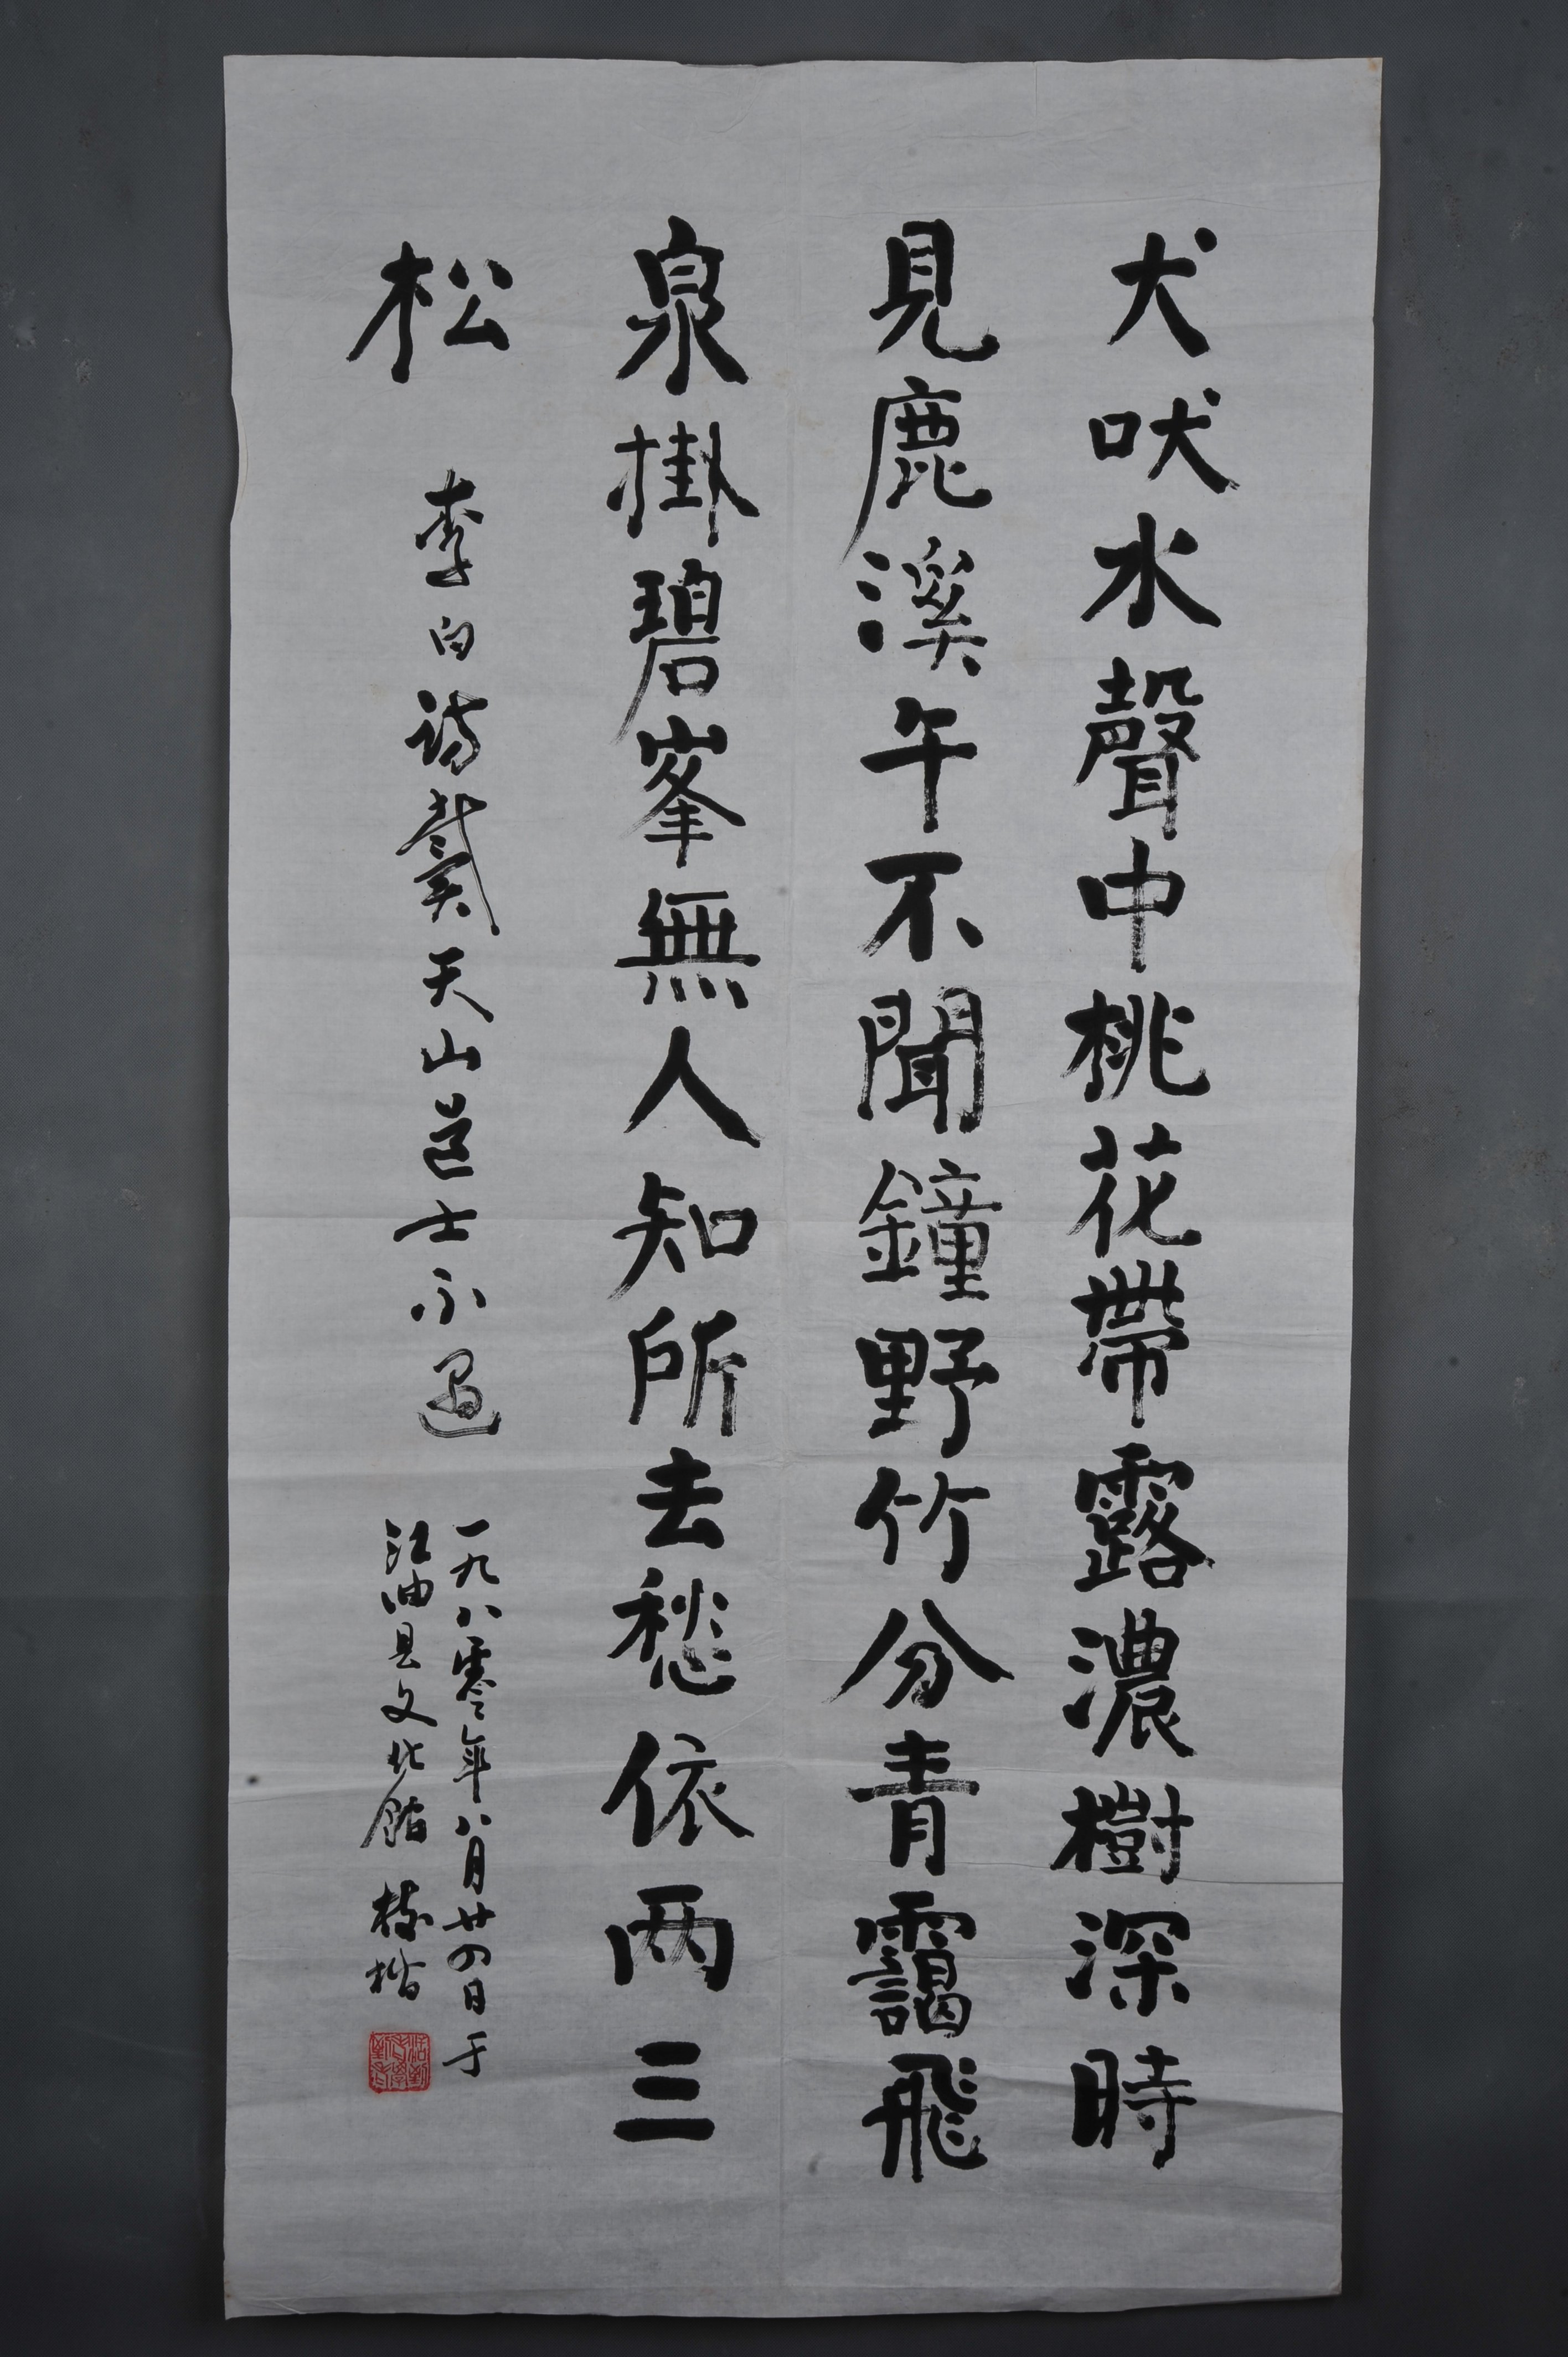 犬吠水聲中桃花帶露濃樹深時
見鹿溪午不聞鐘野竹分青靄飛
泉掛碧峯無人知所去愁依两三
松
李白詩戴天山道士不遇
一九八零年八月廿四日于
江油县文化館